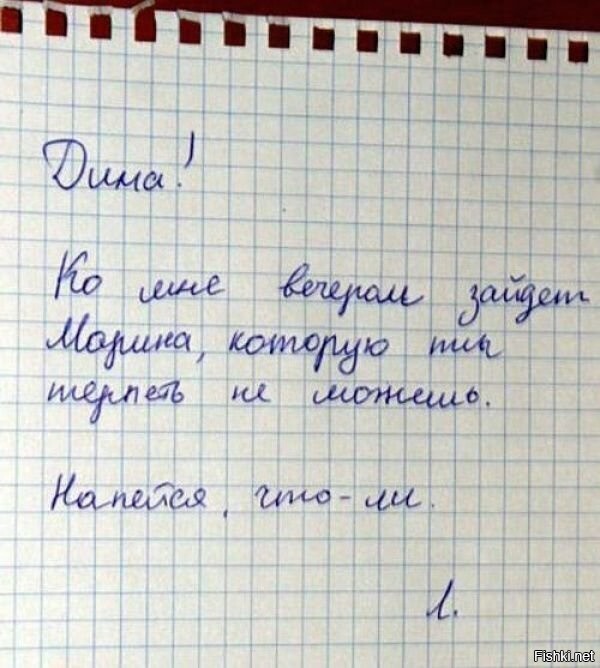 Дима!
Ко мне вечером зайдет
Марина, которую ты
терпеть не можешь.
Напейся, что-ли.
Л.
Fishki.net